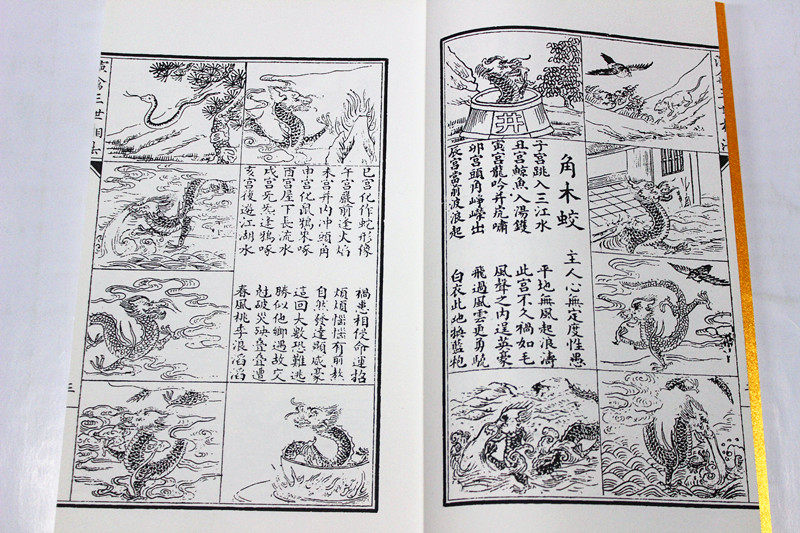 井
角木蛟
主人心無定度性愚
子宮跳入三江水
平地無風起浪濤
丑宮鯨魚入湯鑊
此宮不久禍如毛
寅宮龍吟井坑嘯
風聲之内逞英豪
卯宮頭角崢嶸出
飛過風雲更勇驍
辰宮當前波浪起
白衣此地換藍袍
巳宮化作蛇形像
禍患相侵命運招
午宮巖前逢火焰
煩煩惱惱有前
未宮井内冲頭角
自然發達顯威豪
申宮化鼠鴉來啄
這回大數恐難逃
酉宮屋下長流水
勝似他鄉遇故交
戌宮死逢鴉啄
破災殃疊疊遭
亥宮後邊江湖水
春風桃李浪滔滔
演禽三世相法
三